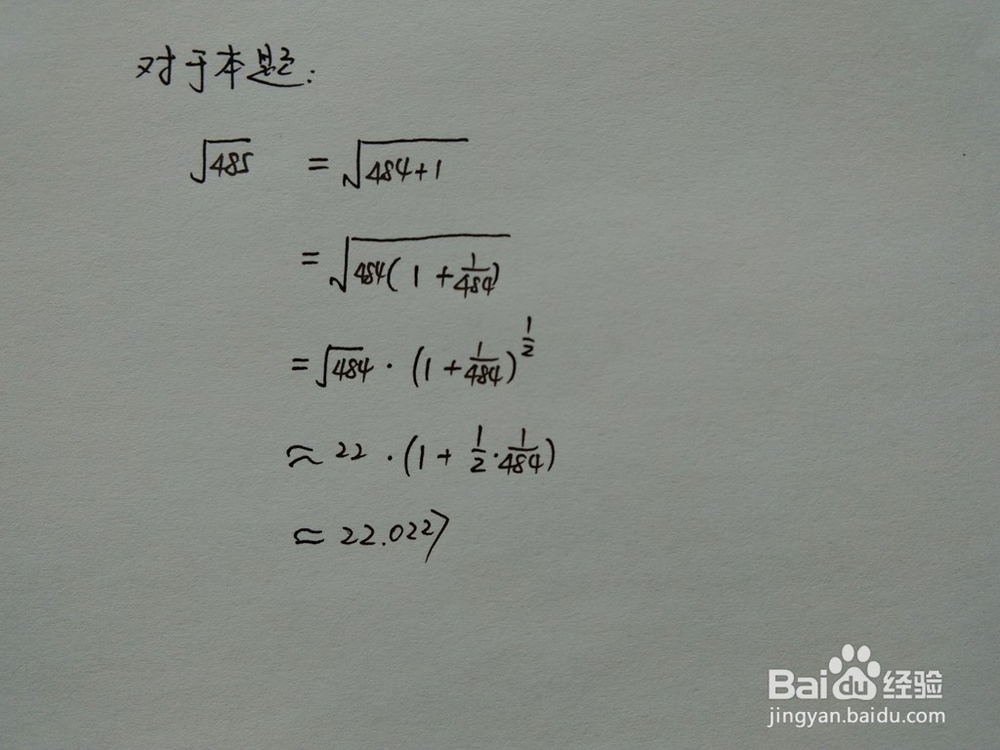 对于本题:
√485 = √(484+1)
= √(484(1+1/484))
= √484 · (1+1/484)^(1/2)
≈ 22 · (1+1/2·1/484)
≈ 22.0227
Baidu经验
jingyan.baidu.com